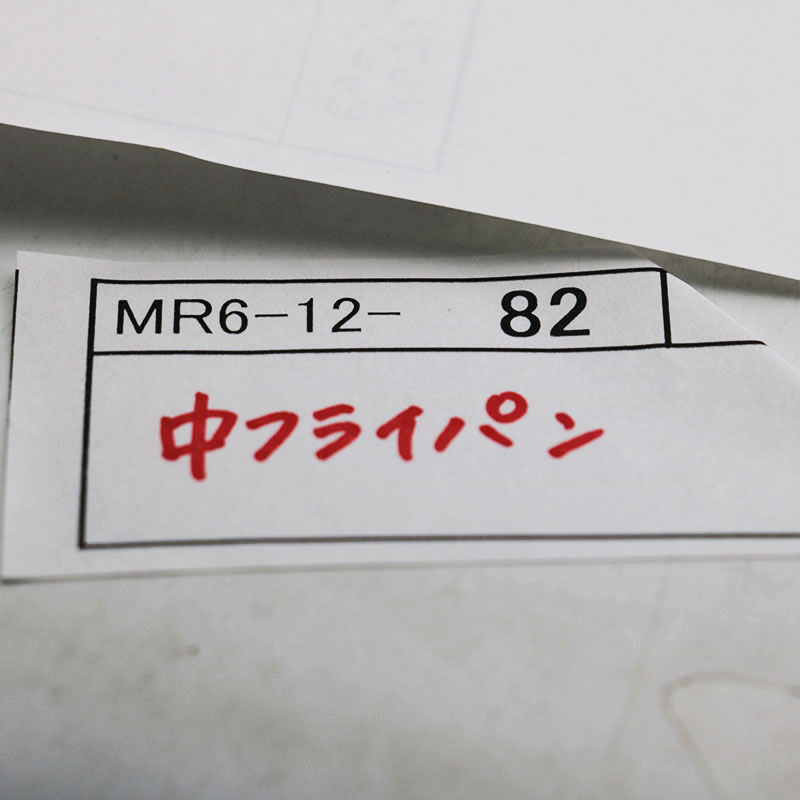 MR6-12- 82
中フライパン